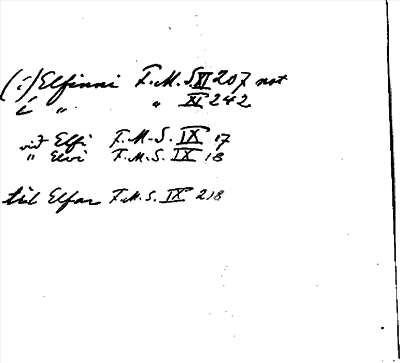 (í) Elfinni F.M.S. XI 207 not
í " " XI 242
við Elfi F.M.S. IX 17
" Elvi F.M.S. IX 18
til Elfar F.M.S. IX 218